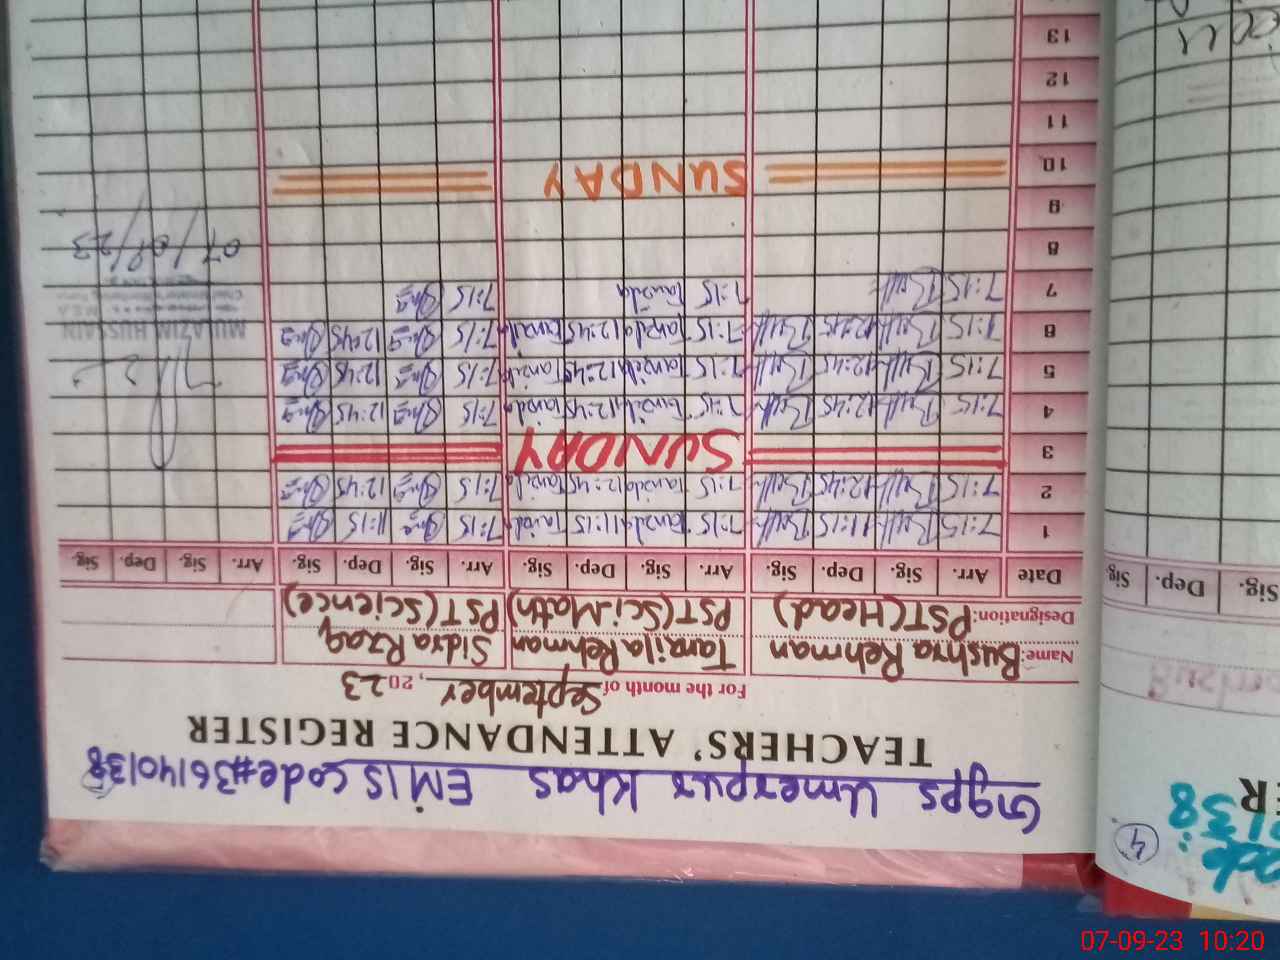 Ggps Umerpur Khas EMIS Code#36140138
TEACHERS' ATTENDANCE REGISTER
For the month of September, 2023
Name: Bushra Rehman Tanzila Rehman Sidra Rzaq
Designation: PST(Head) PST(Sci.Math) PST(Science)
Date Arr. Sig. Dep. Sig. Arr. Sig. Dep. Sig. Arr. Sig. Dep. Sig. Arr. Sig. Dep. Sig.
1 7:15 11:15 7:15 Tanzila 11:15 Tanzila 7:15 11:15
2 7:15 12:45 7:15 Tanzila 12:45 Tanzila 7:15 12:45
3 SUNDAY
4 7:15 12:45 7:15 Tanzila 12:45 Tanzila 7:15 12:45
5 7:15 12:45 7:15 Tanzila 12:45 Tanzila 7:15 12:45
6 7:15 12:45 7:15 Tanzila 12:45 Tanzila 7:15 12:45
MUAZIM HUSSAIN
M.E.A
7 7:15 7:15 Tanzila 7:15
07/09/23
8
9
10 SUNDAY
11
12
13
4
138
ER
Sig. Dep. Sig.
07-09-23 10:20